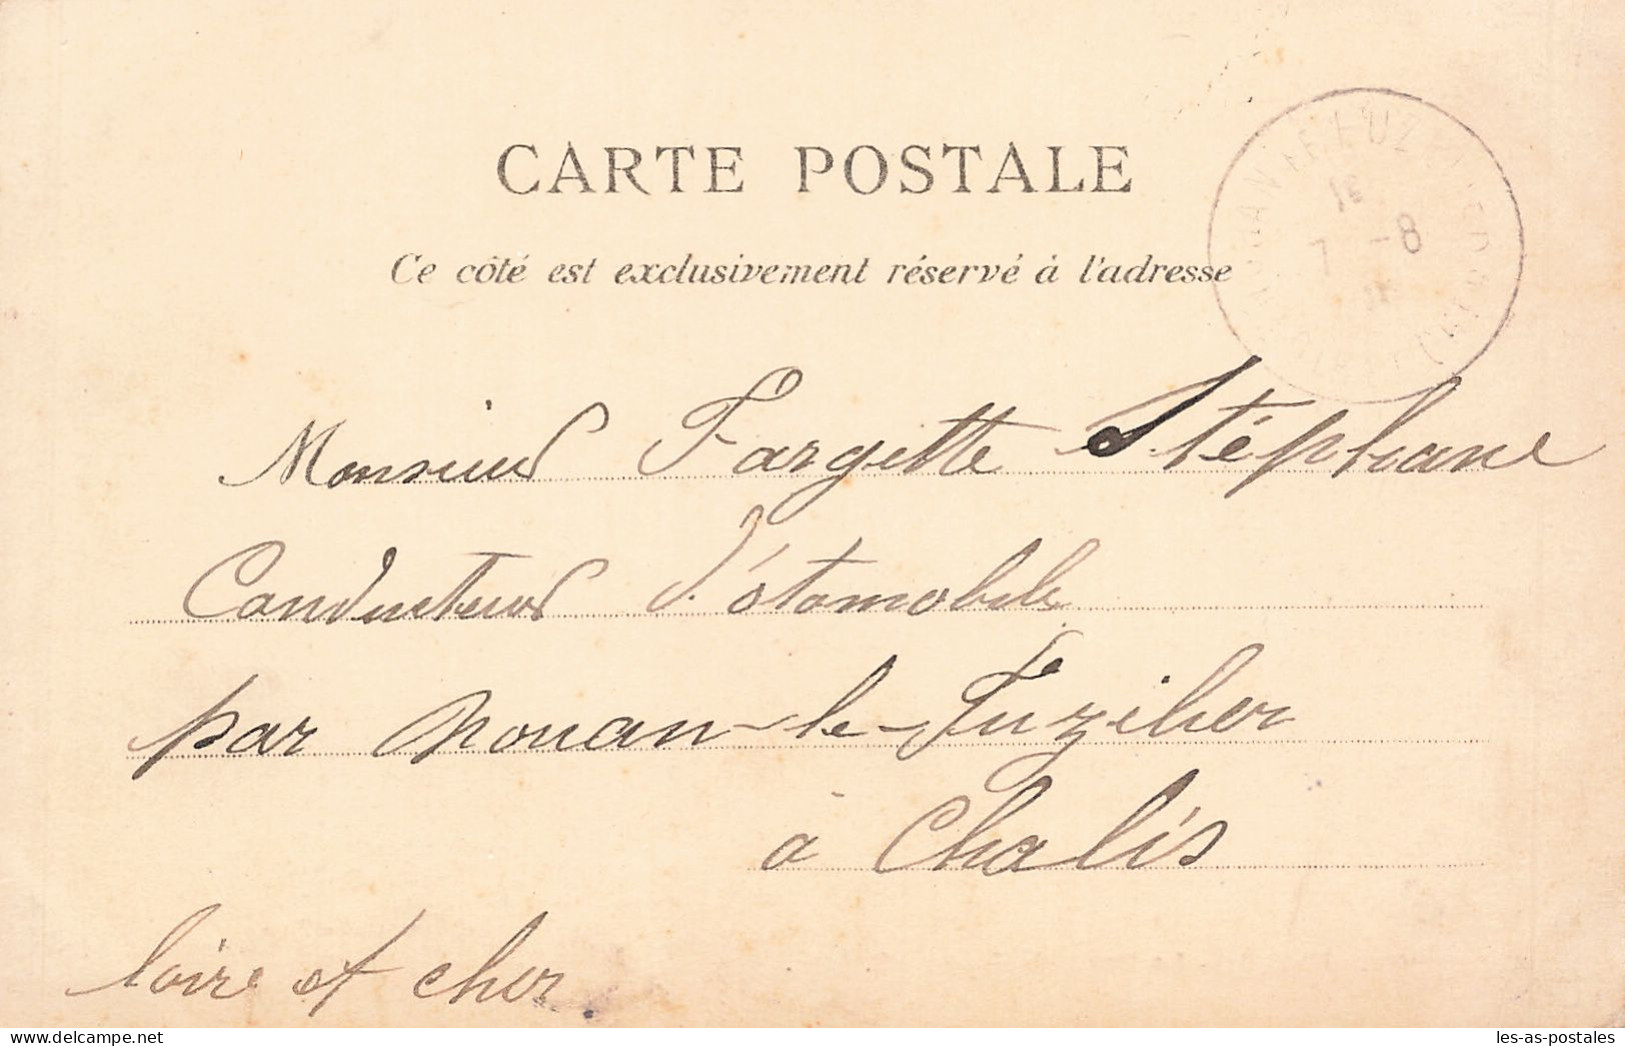 CARTE POSTALE
Ce côté est exclusivement réservé à l'adresse
16
7 -8
Monsieur Fargette Stéphane
Conducteur d'otomobile
par Nouan-le-Fuzilier
à Chalès
loire et cher
www.delcampe.net
les-as-postales